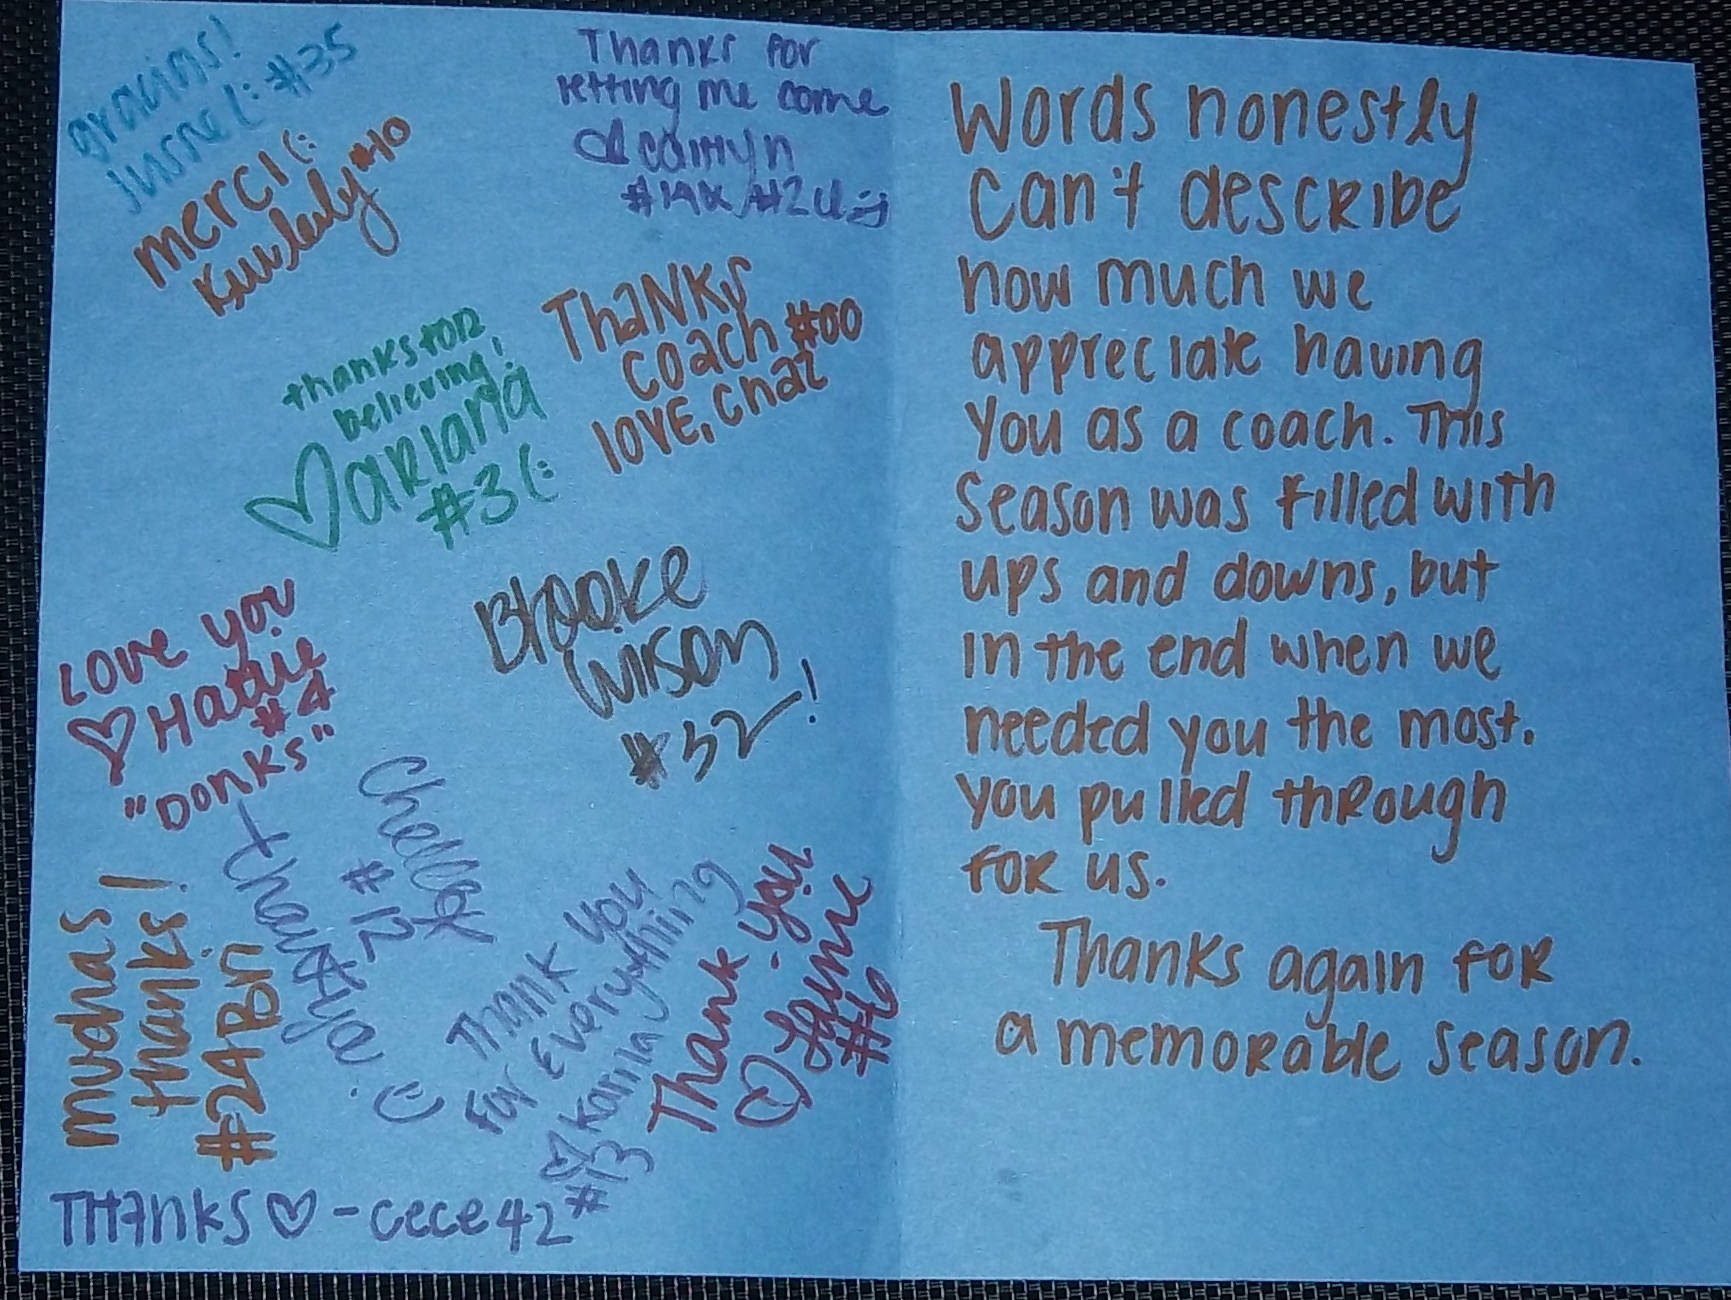 gracias!
(: #35
merci (:
Kimberly #10
Thanks for
letting me come
caitlyn
Thanks
coach #00
love, chaz
thanks for
believing!
ariana
#3 (:
Love you
Hattie
#4
"Donks"
Brooke
Wilson
#32!
#12
muchas
thanks!
#24 Bri
Thank you
for everything
#13
Thank-you
Jaime
#6
Thanks - cece 42
Words honestly
can't describe
how much we
appreciate having
you as a coach. This
season was filled with
ups and downs, but
in the end when we
needed you the most.
you pulled through
for us.
Thanks again for
a memorable season.